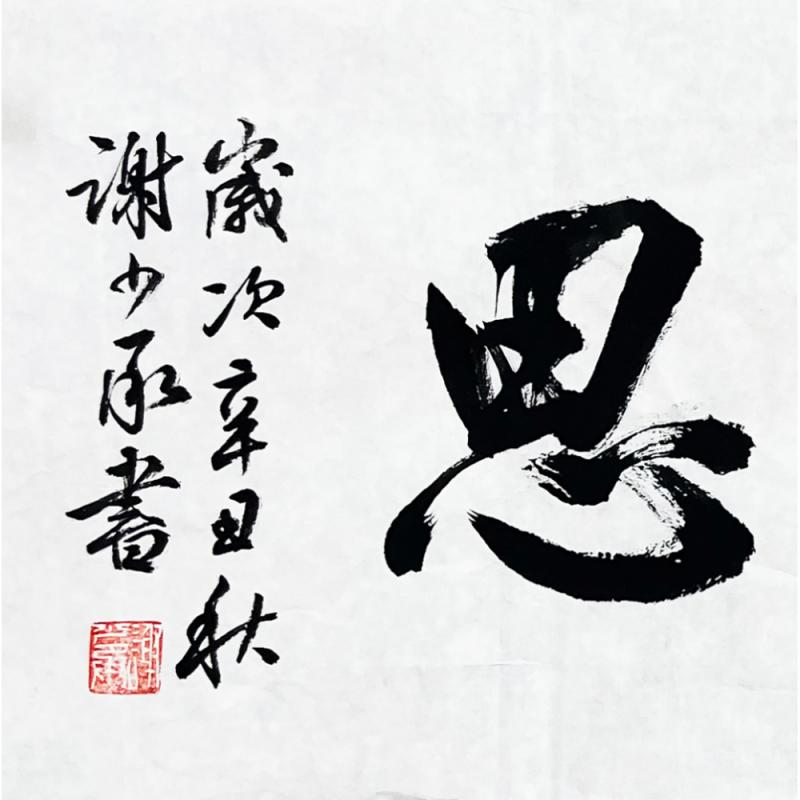 思
歲次辛丑秋
謝少承書